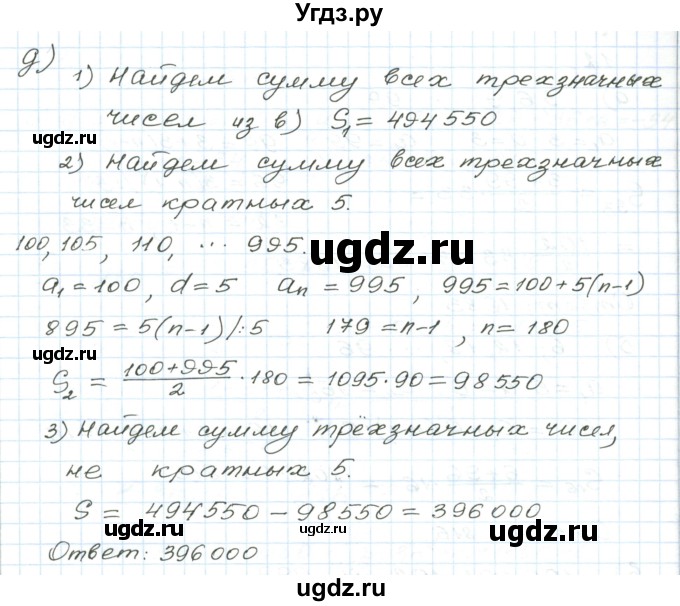 Угдз.ру
д)
1) Найдем сумму всех трехзначных
чисел из в) S₁ = 494 550
ugdz.ru
2) Найдем сумму всех трехзначных
чисел кратных 5.
ugdz.ru
100, 105, 110, ... 995.
ugdz.ru
a₁ = 100, d = 5 aₙ = 995, 995 = 100 + 5(n-1)
895 = 5(n-1) /:5 179 = n-1, n = 180
ugdz.ru
S₂ = (100+995)/2 · 180 = 1095 · 90 = 98 550
3) Найдем сумму трёхзначных чисел,
ugdz.ru
не кратных 5.
ugdz.ru
S = 494550 - 98550 = 396 000
ugdz.ru
ugdz.ru
Ответ: 396 000
ugdz.ru